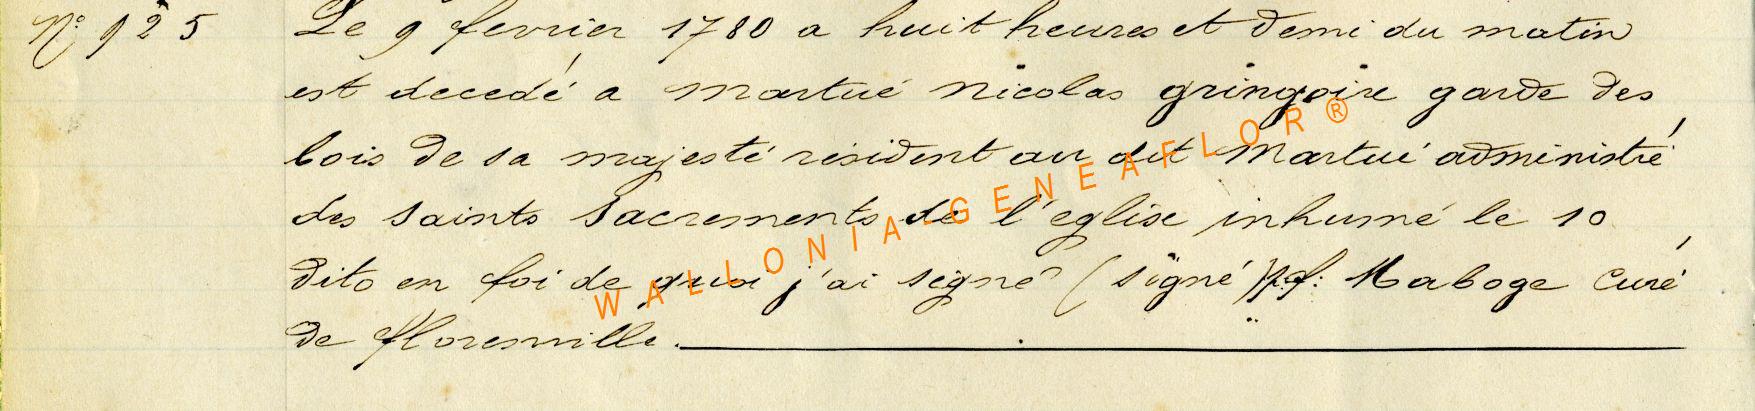 N° 125 Le 9 fevrier 1780 a huit heures et demi du matin
est decedé a Martué Nicolas gringoire garde des
bois de sa majesté résident au dit Martué administré
des saints Sacrements de l'eglise inhumé le 10
dito en foi de quoi j'ai signé (signé) p.f. Maboge Curé
de florenville.
WALLONIA-GENEAFLOR®